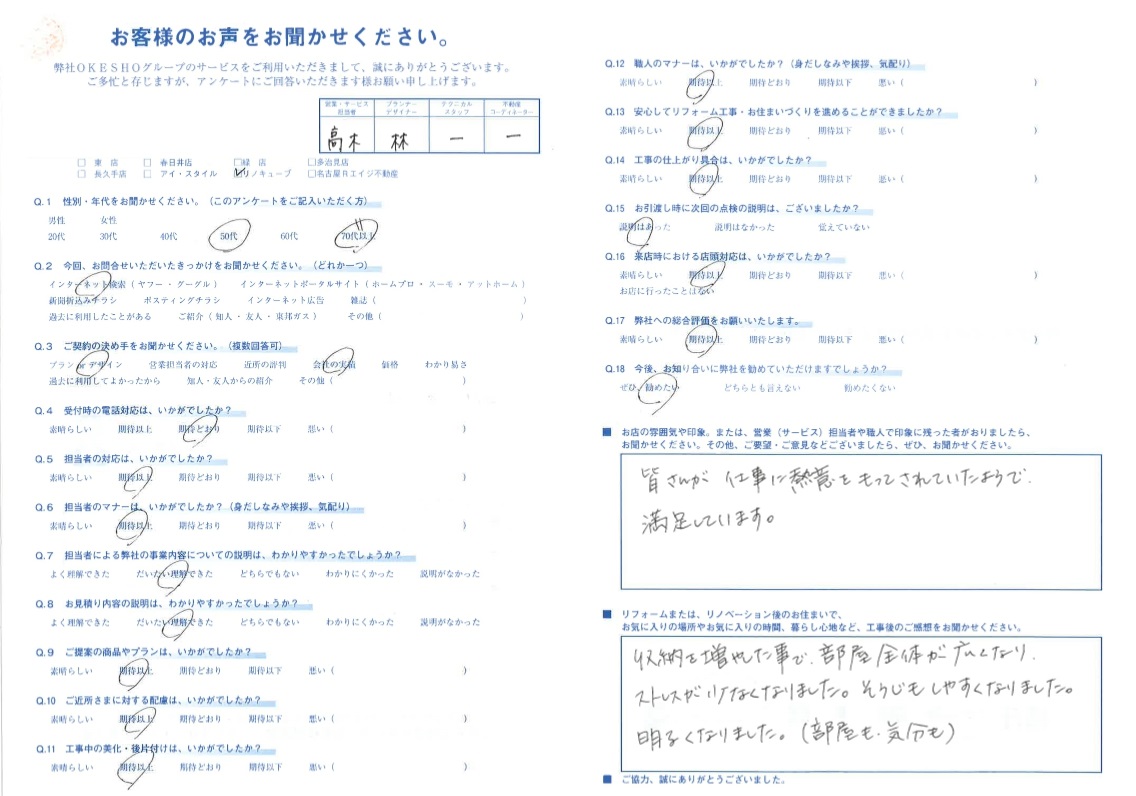 お客様のお声をお聞かせください。
弊社ＯＫＥＳＨＯグループのサービスをご利用いただきまして、誠にありがとうございます。
ご多忙と存じますが、アンケートにご回答いただきます様お願い申し上げます。
営業・サービス担当者 プランナーデザイナー テクニカルスタッフ 不動産コーディネーター
高木 林 ー ー
□ 東 店 □ 春日井店 □緑 店 □多治見店
□ 長久手店 □ アイ・スタイル ☑リノキューブ □名古屋Ｒエイジ不動産
Q.1 性別・年代をお聞かせください。（このアンケートをご記入いただく方）
男性 女性
20代 30代 40代 50代 60代 70代以上
Q.2 今回、お問合せいただいたきっかけをお聞かせください。（どれか一つ）
インターネット検索（ ヤフー ・ グーグル ） インターネットポータルサイト（ ホームプロ ・ スーモ ・ アットホーム ）
新聞折込みチラシ ポスティングチラシ インターネット広告 雑誌（ ）
過去に利用したことがある ご紹介（ 知人 ・ 友人 ・ 東邦ガス ） その他（ ）
Q.3 ご契約の決め手をお聞かせください。（複数回答可）
プラン or デザイン 営業担当者の対応 近所の評判 会社の実績 価格 わかり易さ
過去に利用してよかったから 知人・友人からの紹介 その他（ ）
Q.4 受付時の電話対応は、いかがでしたか？
素晴らしい 期待以上 期待どおり 期待以下 悪い（ ）
Q.5 担当者の対応は、いかがでしたか？
素晴らしい 期待以上 期待どおり 期待以下 悪い（ ）
Q.6 担当者のマナーは、いかがでしたか？（身だしなみや挨拶、気配り）
素晴らしい 期待以上 期待どおり 期待以下 悪い（ ）
Q.7 担当者による弊社の事業内容についての説明は、わかりやすかったでしょうか？
よく理解できた だいたい理解できた どちらでもない わかりにくかった 説明がなかった
Q.8 お見積り内容の説明は、わかりやすかったでしょうか？
よく理解できた だいたい理解できた どちらでもない わかりにくかった 説明がなかった
Q.9 ご提案の商品やプランは、いかがでしたか？
素晴らしい 期待以上 期待どおり 期待以下 悪い（ ）
Q.10 ご近所さまに対する配慮は、いかがでしたか？
素晴らしい 期待以上 期待どおり 期待以下 悪い（ ）
Q.11 工事中の美化・後片付けは、いかがでしたか？
素晴らしい 期待以上 期待どおり 期待以下 悪い（ ）
Q.12 職人のマナーは、いかがでしたか？（身だしなみや挨拶、気配り）
素晴らしい 期待以上 期待どおり 期待以下 悪い（ ）
Q.13 安心してリフォーム工事・お住まいづくりを進めることができましたか？
素晴らしい 期待以上 期待どおり 期待以下 悪い（ ）
Q.14 工事の仕上がり具合は、いかがでしたか？
素晴らしい 期待以上 期待どおり 期待以下 悪い（ ）
Q.15 お引渡し時に次回の点検の説明は、ございましたか？
説明はあった 説明はなかった 覚えていない
Q.16 来店時における店頭対応は、いかがでしたか？
素晴らしい 期待以上 期待どおり 期待以下 悪い（ ）
お店に行ったことはない
Q.17 弊社への総合評価をお願いいたします。
素晴らしい 期待以上 期待どおり 期待以下 悪い（ ）
Q.18 今後、お知り合いに弊社を勧めていただけますでしょうか？
ぜひ、勧めたい どちらとも言えない 勧めたくない
■ お店の雰囲気や印象。または、営業（サービス）担当者や職人で印象に残った者がおりましたら、
お聞かせください。その他、ご要望・ご意見などございましたら、ぜひ、お聞かせください。
皆さんが 仕事に熱意をもってされていたようで、
満足しています。
■ リフォームまたは、リノベーション後のお住まいで、
お気に入りの場所やお気に入りの時間、暮らし心地など、工事後のご感想をお聞かせください。
収納を増やした事で、部屋全体が広くなり、
ストレスが少なくなりました。そうじもしやすくなりました。
明るくなりました。（部屋も、気分も）
■ ご協力、誠にありがとうございました。